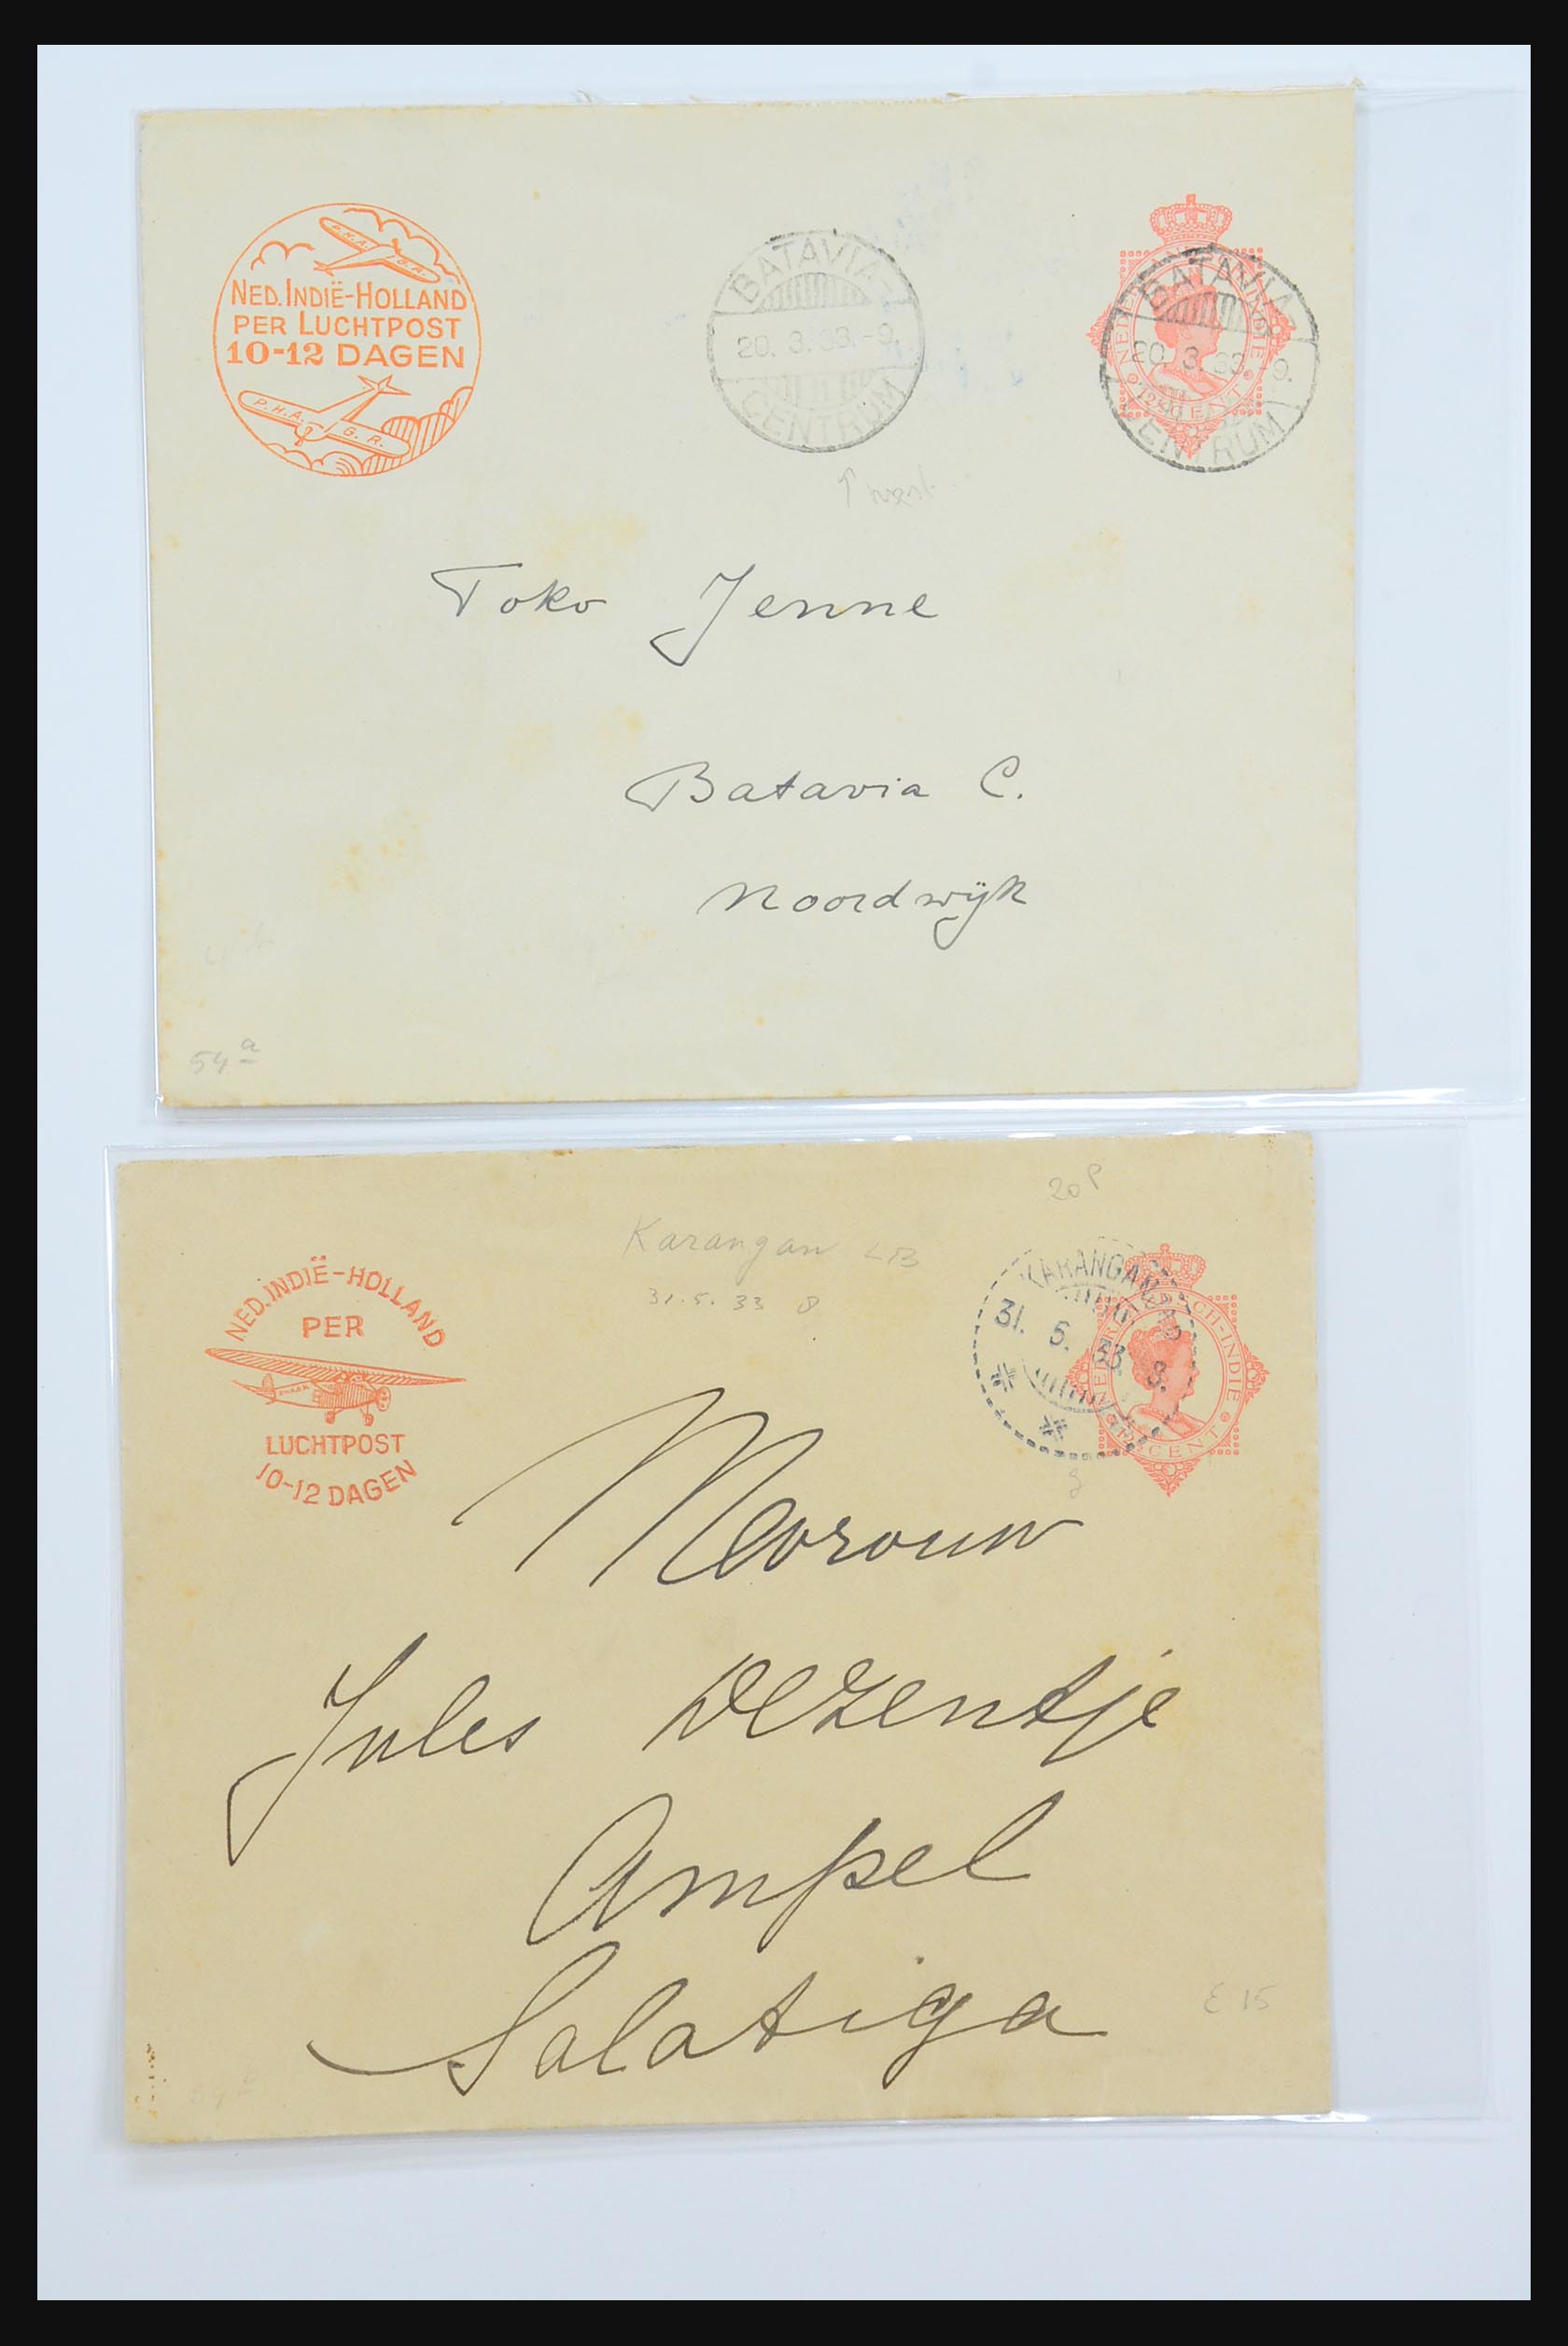 P.H.A.
G.R.
NED. INDIË-HOLLAND
PER LUCHTPOST
10-12 DAGEN
P.H.A.
G.R.
BATAVIA-
20. 3. 33.-9.
CENTRUM
BATAVIA-
20. 3. 33.-9.
CENTRUM
CENT
Toko Jenne
Batavia C.
Noordwijk
54a
20P
Karangan LB
31.5.33 8
NED. INDIË-HOLLAND
PER
LUCHTPOST
10-12 DAGEN
KARANGAN
31. 5. 33. 8.
NEDERLANDSCH-INDIE
CENT
Mevrouw
Jules Dezentje
Ampel
Salatiga
E 15